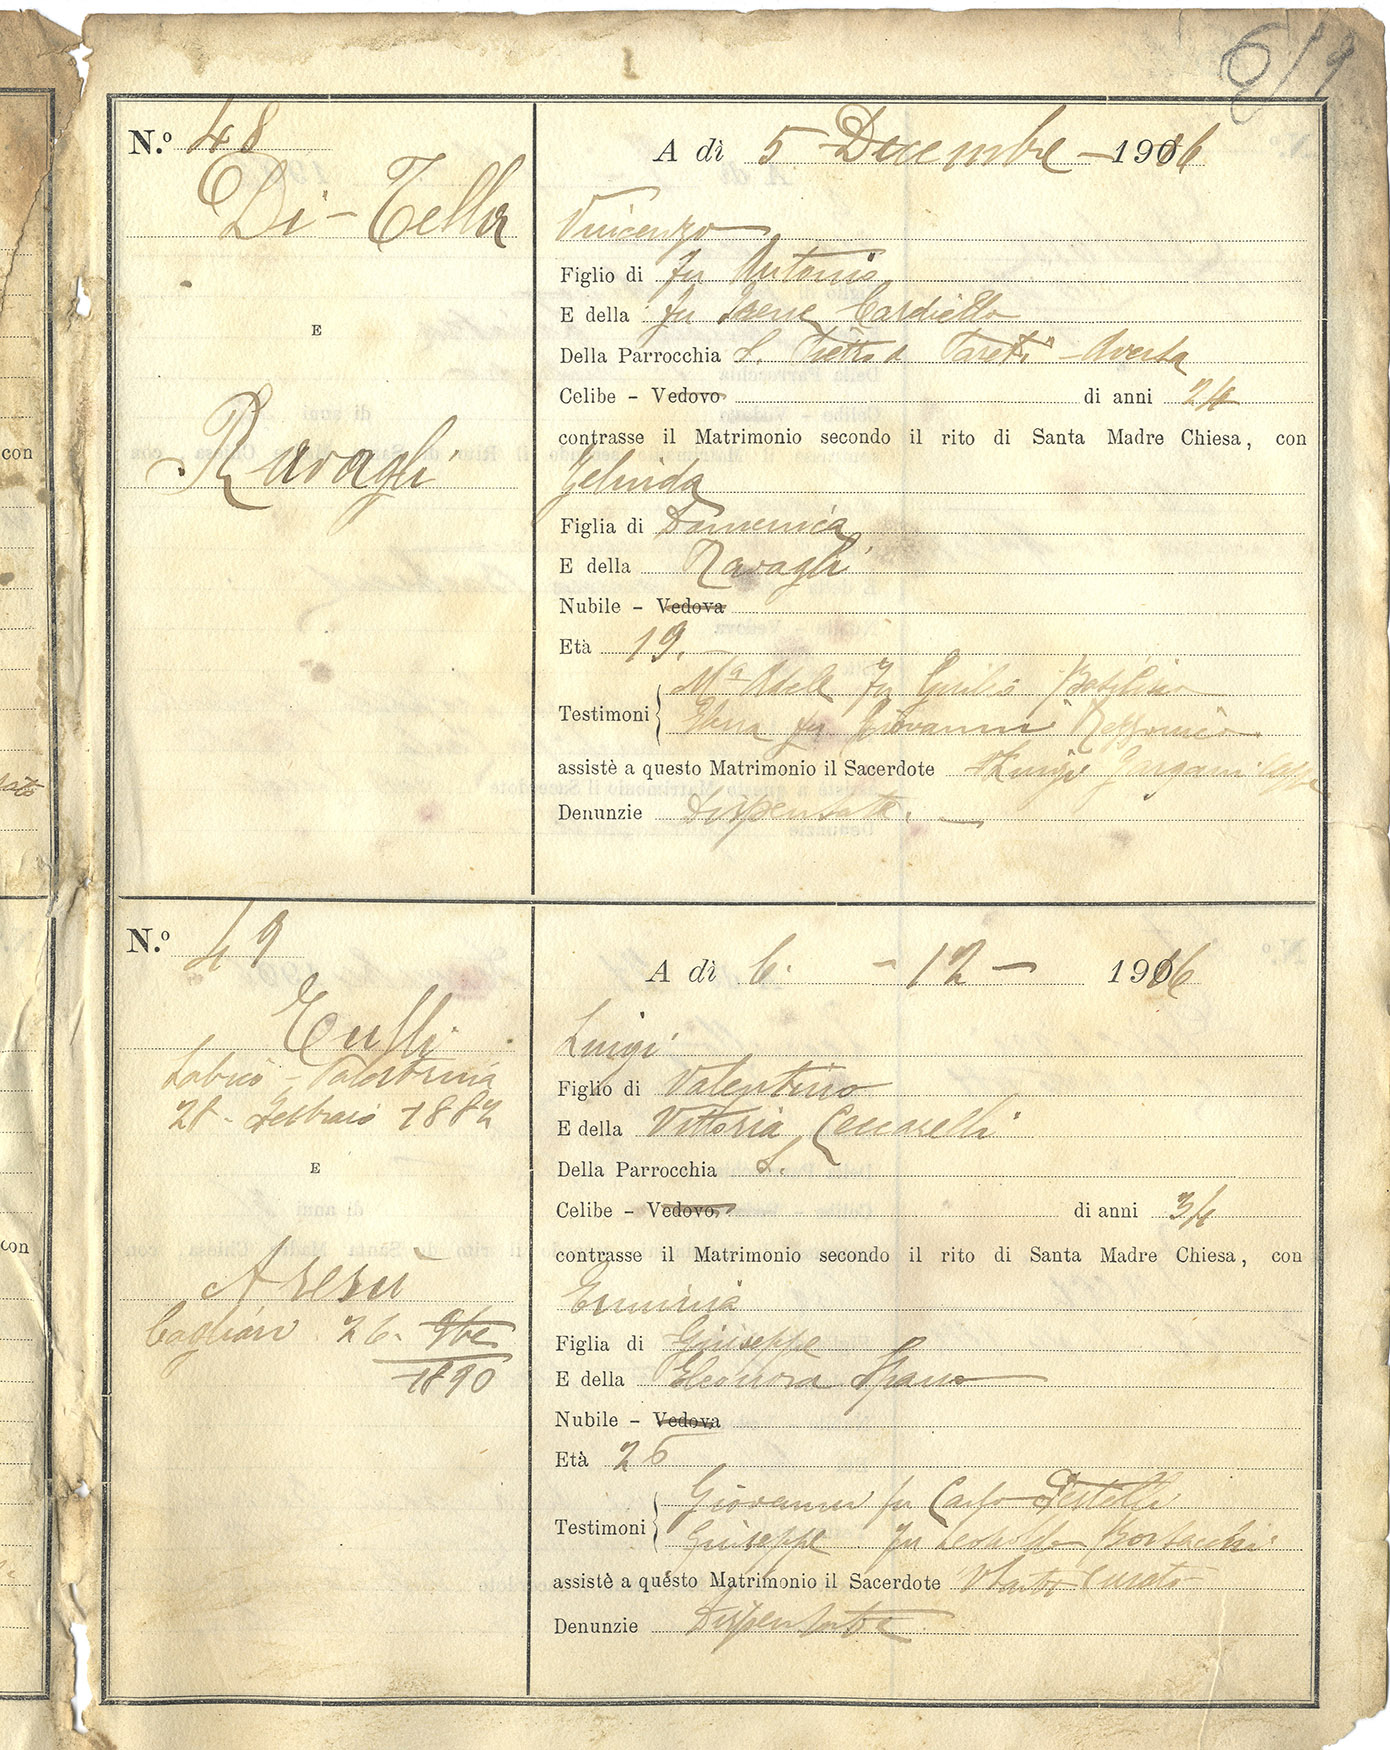 619
N.º 48
A dì 5 Decembre 1916
Di-Tella
Vincenzo
Figlio di fu Antonio
E della fu Irene Cardillo
Della Parrocchia S. - Aversa
E
Celibe - Vedovo di anni 24
contrasse il Matrimonio secondo il rito di Santa Madre Chiesa, con
Ravagli
Gelinda
Figlia di Domenica
E della Ravagli
Nubile - Vedova
Età 19.
Mª Adele fu Giulio
Testimoni
fu Giovanni
assistè a questo Matrimonio il Sacerdote Luigi
Denunzie Dispensate.
N.º 49
A dì 6. - 12 - 1916
Luigi
Labico - Palestrina
Figlio di Valentino
28 - Febbraio 1882
E della Vittoria Ceccarelli
E
Della Parrocchia S.
Celibe - Vedovo di anni 34
contrasse il Matrimonio secondo il rito di Santa Madre Chiesa, con
Aresu
Erminia
Cagliari 26. 9bre
Figlia di Giuseppe
1890
E della Eleonora Spano
Nubile - Vedova
Età 26
Giovanni fu Carlo
Testimoni
Giuseppe fu Leopoldo
assistè a questo Matrimonio il Sacerdote Curato
Denunzie Dispensate
con
con